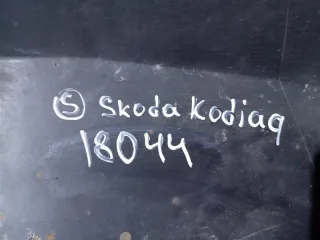 Ⓢ Skoda Kodiaq
18044